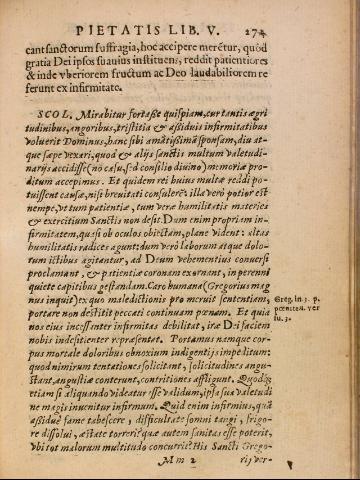 PIETATIS LIB. V. 274
cant sanctorum suffragia, hoc accipere merētur, quòd
gratia Dei ipsos suauius instituens, reddit patientiores
& inde vberiorem fructum ac Deo laudabiliorem re
ferunt ex infirmitate.
SCOL. Mirabitur fortaße quispiam, cur tantis ægri
tudinibus, angoribus, tristitia & aßiduis infirmitatibus
voluerit Dominus, hanc sibi amātißimā sponsam, diu at-
que sæpe vexari, quod & alijs sanctis multum valetudi-
narijs accidisse (nō casu, sed consilio diuino) memoriæ pro-
ditum accepimus. Et quidem rei huius multæ reddi po-
tuissent causæ, nisi breuitati consulerē: illa verò potior est
nempe, vt tum patientiæ, tum veræ humilitatis materies
& exercitium Sanctis non desit. Dum enim propriam in-
firmitatem, quasi ob oculos obiectam, plane vident: altas
humilitatis radices agunt: dum verò laborum atque dolo-
rum ictibus agitantur, ad Deum vehementius conuersi
proclamant, & patientiæ coronam exornant, in perenni
quiete capitibus gestandam. Caro humana (Gregorius mag
nus inquit) ex quo maledictionis pro meruit sententiam,
portare non destitit peccati continuam pœnam. Et quia
nos eius incessanter infirmitas debilitat, iræ Dei faciem
nobis indesitienter repræsentat. Portamus namque cor-
pus mortale doloribus obnoxium indigentijs impeditum:
quod nimirum tentationes solicitant, solicitudines angu-
stant, angustiæ conterunt, contritiones affligunt. Quodq;
etiam si aliquando videatur esse validum, ipsa sua valetudi
ne magis inuenitur infirmum. Quid enim infirmius, quā
aßiduè fame tabescere, difficultate somni tangi, frigo-
re dissolui, æstate torreri? quæ autem sanitas esse poterit,
vbi tot malorum multitudo concurrit? His Sancti Grego-
Greg. in 3. p.
pœniten. ver
su. 3.
Mm 2 rij ver-